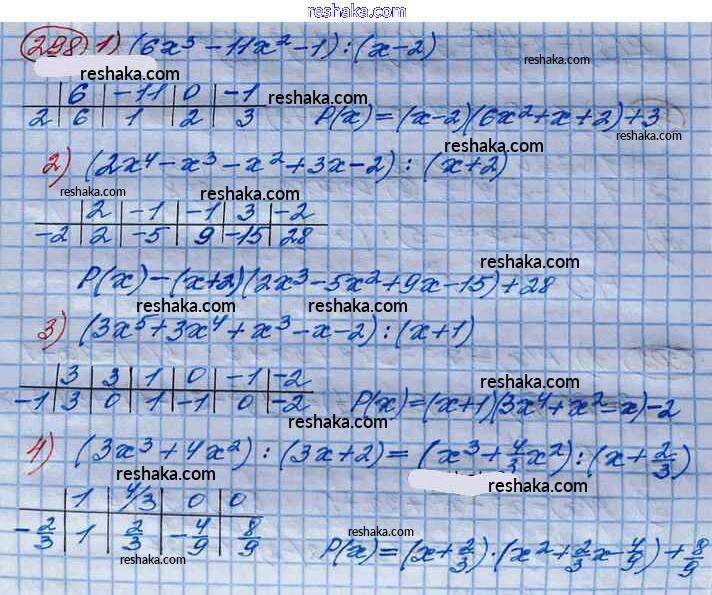 reshaka.com
298 1) (6x³ - 11x² - 1) : (x - 2)
reshaka.com reshaka.com
| 6 | -11 | 0 | -1
reshaka.com
2 | 6 | 1 | 2 | 3 P(x) = (x-2)(6x²+x+2)+3
reshaka.com
2) (2x⁴ - x³ - x² + 3x - 2) : (x + 2)
reshaka.com reshaka.com
| 2 | -1 | -1 | 3 | -2
reshaka.com
-2 | 2 | -5 | 9 | -15 | 28
reshaka.com reshaka.com
P(x) - (x+2)(2x³ - 5x² + 9x - 15) + 28
reshaka.com reshaka.com
3) (3x⁵ + 3x⁴ + x³ - x - 2) : (x + 1)
reshaka.com reshaka.com
| 3 | 3 | 1 | 0 | -1 | -2
reshaka.com
-1 | 3 | 0 | 1 | -1 | 0 | -2 P(x) = (x+1)(3x⁴+x²-x)-2
reshaka.com
4) (3x³ + 4x²) : (3x + 2) = (x³ + 4/3 x²) : (x + 2/3)
reshaka.com reshaka.com
| 1 | 4/3 | 0 | 0
reshaka.com
-2/3 | 1 | 2/3 | -4/9 | 8/9
reshaka.com reshaka.com
P(x) = (x + 2/3) · (x² + 2/3 x - 4/9) + 8/9